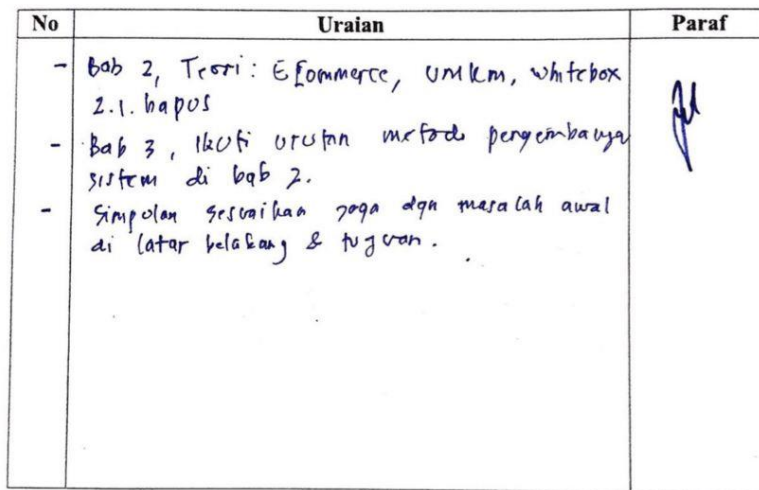 No Uraian Paraf
- Bab 2, Teori: E Commerce, UMKM, whitebox
2.1. hapus
- Bab 3, Ikuti urutan metode pengembangan
sistem di bab 2.
- Simpulan sesuaikan juga dgn masalah awal
di latar belakang & tujuan.